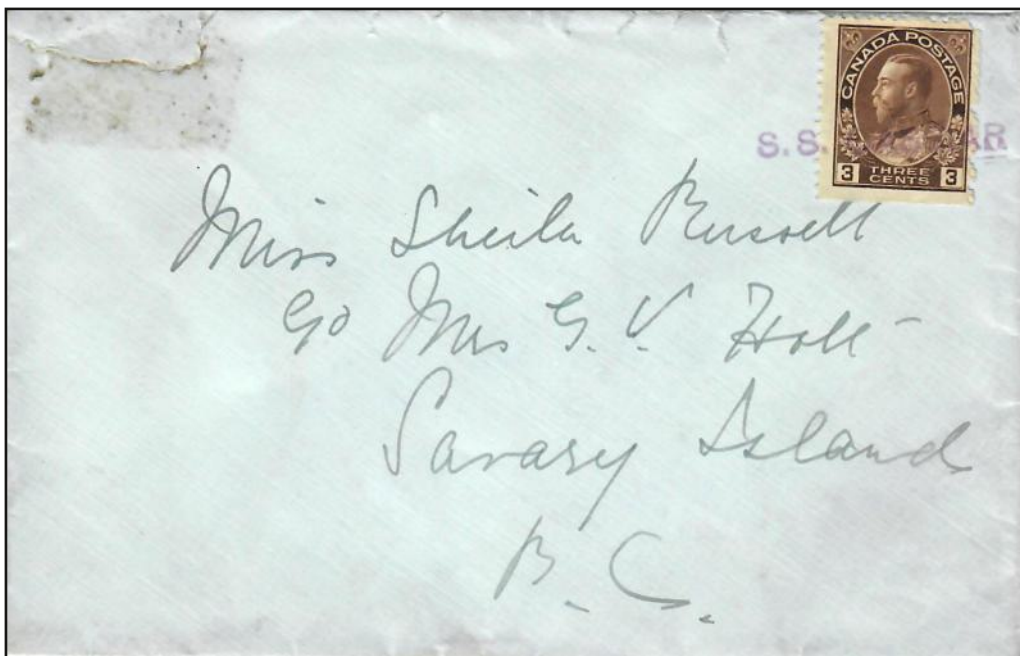 CANADA POSTAGE
3 THREE CENTS 3
S.S.
Miss Sheila Russell
c/o Mrs G. V. Holt
Savary Island
B. C.